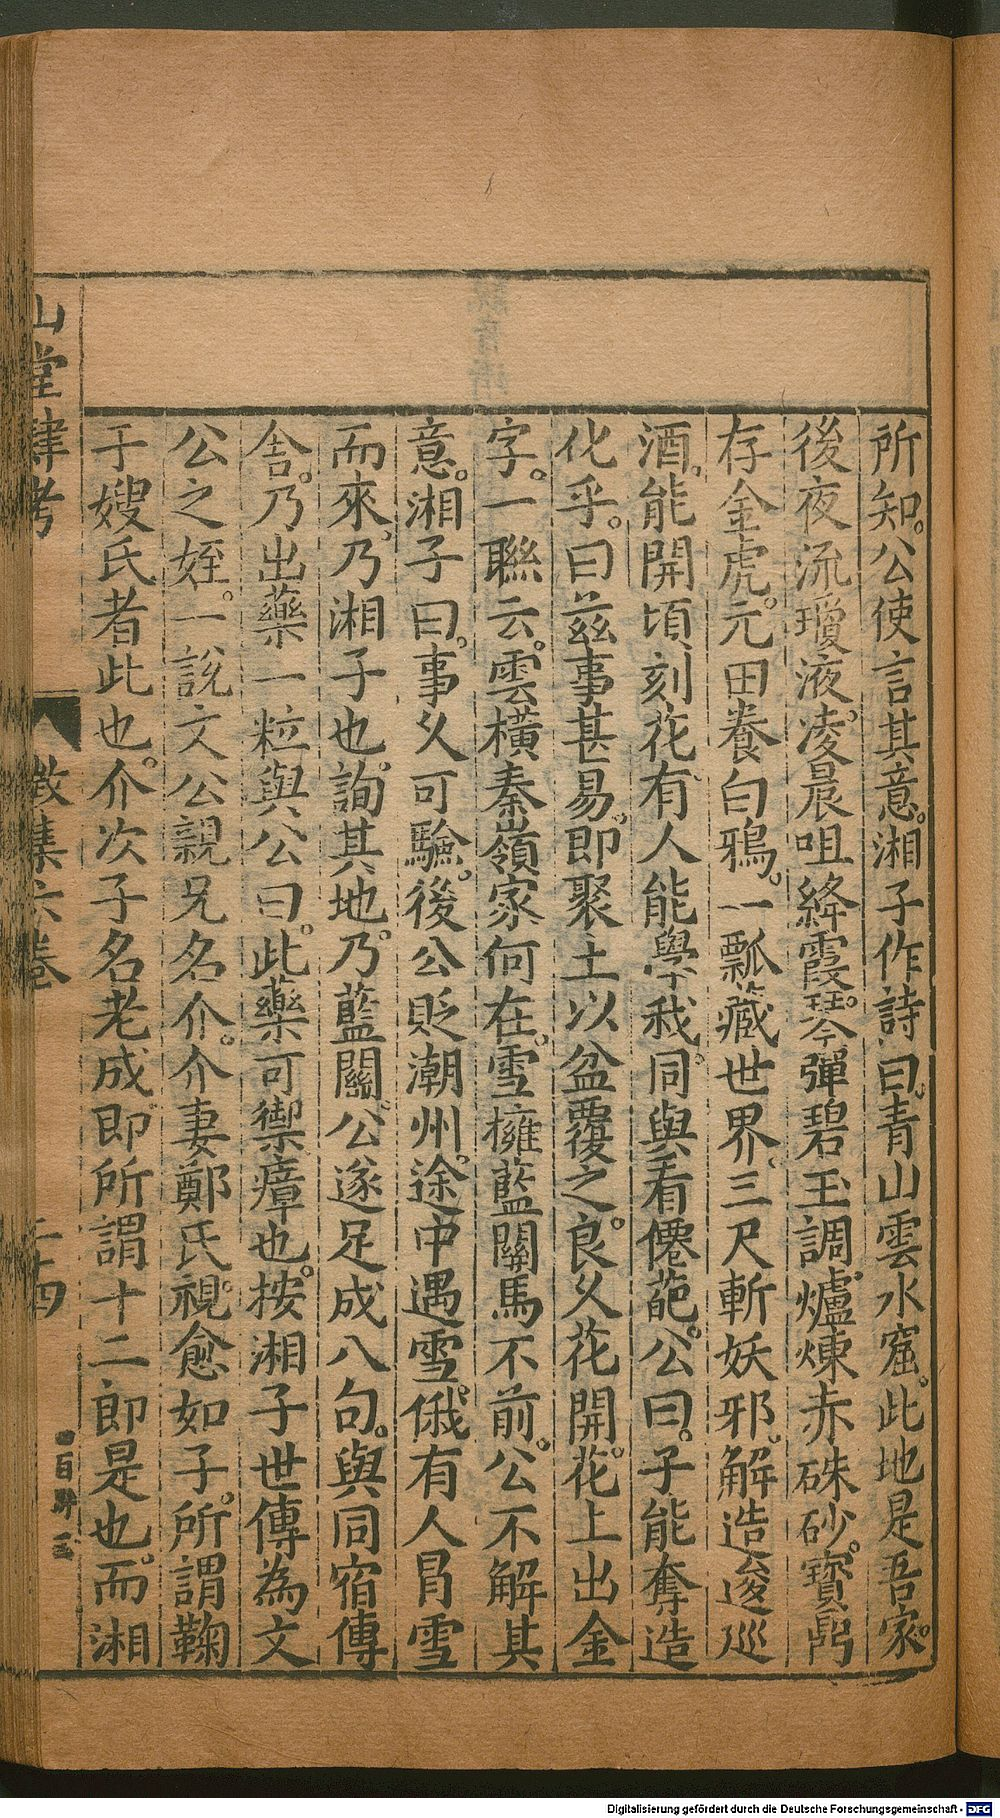 所知。公使言其意。湘子作詩曰。青山雲水窟。此地是吾家。
後夜流瓊液。凌晨咀絳霞。琴彈碧玉調。爐煉赤硃砂。寳鼎
存金虎。元田養白鴉。一瓢藏世界。三尺斬妖邪。解造逡巡
酒。能開頃刻花。有人能學我。同與看僊葩。公曰。子能奪造
化乎。曰兹事甚易。即聚土以盆覆之。良乆花開。花上出金
字。一聯云。雲橫秦嶺家何在。雪擁藍關馬不前。公不解其
意。湘子曰。事乆可驗。後公貶潮州。途中遇雪。俄有人冐雪
而來。乃湘子也。詢其地。乃藍關。公遂足成八句。與同宿傳
舍。乃出藥一粒與公曰。此藥可禦瘴也。按湘子世傳為文
公之姪。一説文公親兄名介。介妻鄭氏。視愈如子。所謂鞠
于嫂氏者此也。介次子名老成即所謂十二郎是也。而湘
山堂肆考
徵集六卷
二十四